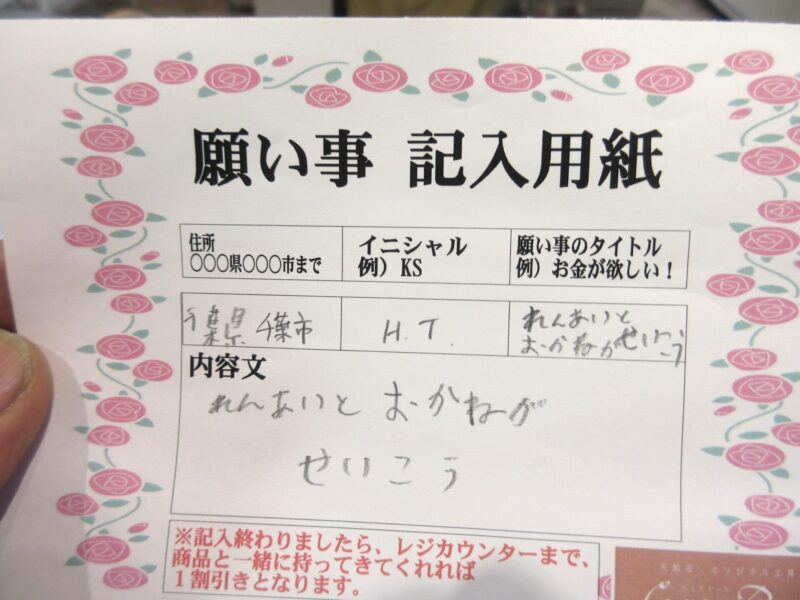 願い事 記入用紙
住所
〇〇〇県〇〇〇市まで
イニシャル
例）KS
願い事のタイトル
例）お金が欲しい！
千葉県 千葉市
H.T.
れんあいと
おかねがせいこう
内容文
れんあいと おかねが
せいこう
※記入終わりましたら、レジカウンターまで、
商品と一緒に持ってきてくれれば
1割引きとなります。
天然石 オリジナル工房